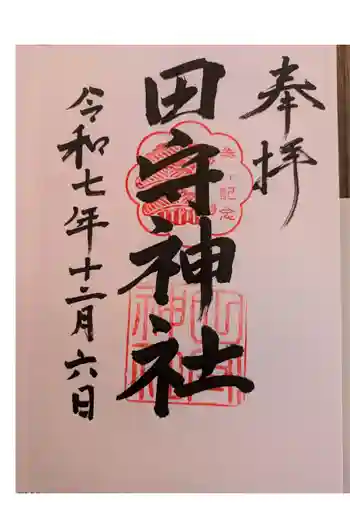 奉拝
田守神社
令和七年十二月六日
記念